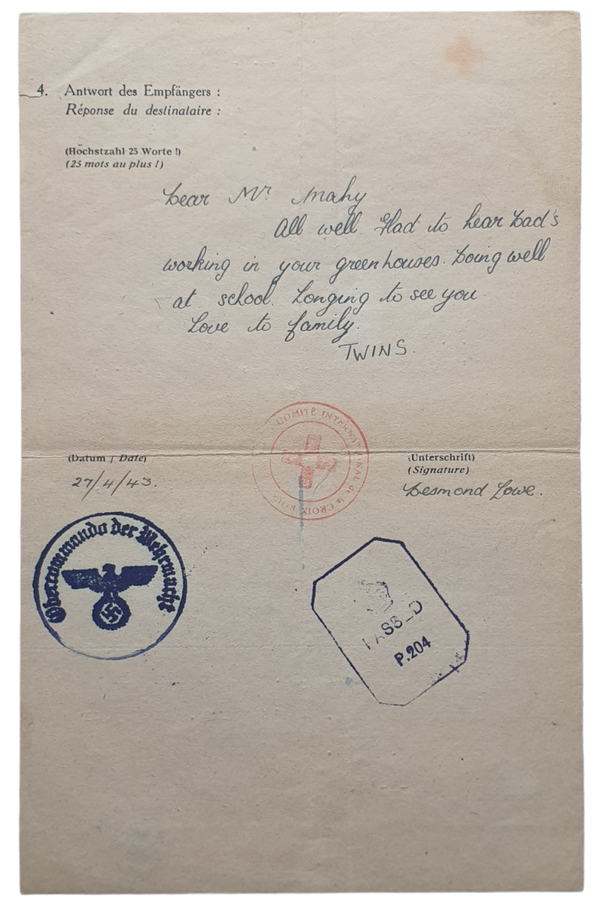 4. Antwort des Empfängers :
Réponse du destinataire :
(Höchstzahl 25 Worte !)
(25 mots au plus !)
Dear Mr. Mahy
All well. Glad to hear Dad's
working in your greenhouses. Doing well
at school. Longing to see you.
Love to family.
TWINS.
COMITÉ INTERNATIONAL de la CROIX ROUGE
(Datum / Date)
27/4/43.
(Unterschrift)
(Signature)
Desmond Lowe.
Obercommando der Wehrmacht
PASSED
P.204